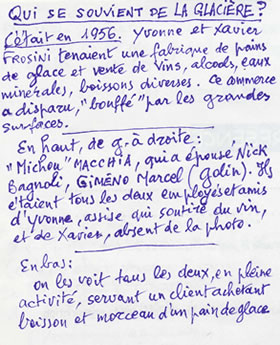 QUI SE SOUVIENT DE LA GLACIÈRE?
C'était en 1956. Yvonne et Xavier
FROSINI tenaient une fabrique de pains
de glace et vente de vins, alcools, eaux
minérales, boissons diverses. Ce commerce
a disparu, "bouffé" par les grandes
surfaces.
En haut, de g. à droite:
"Michou" MACCHIA, qui a épousé Nick
Bagnoli, GIMÉNO Marcel (golin). Ils
étaient tous les deux employés et amis
d'Yvonne, assise qui soutire du vin,
et de Xavier, absent de la photo.
En bas:
on les voit tous les deux, en pleine
activité, servant un client achetant
boisson et morceau d'un pain de glace